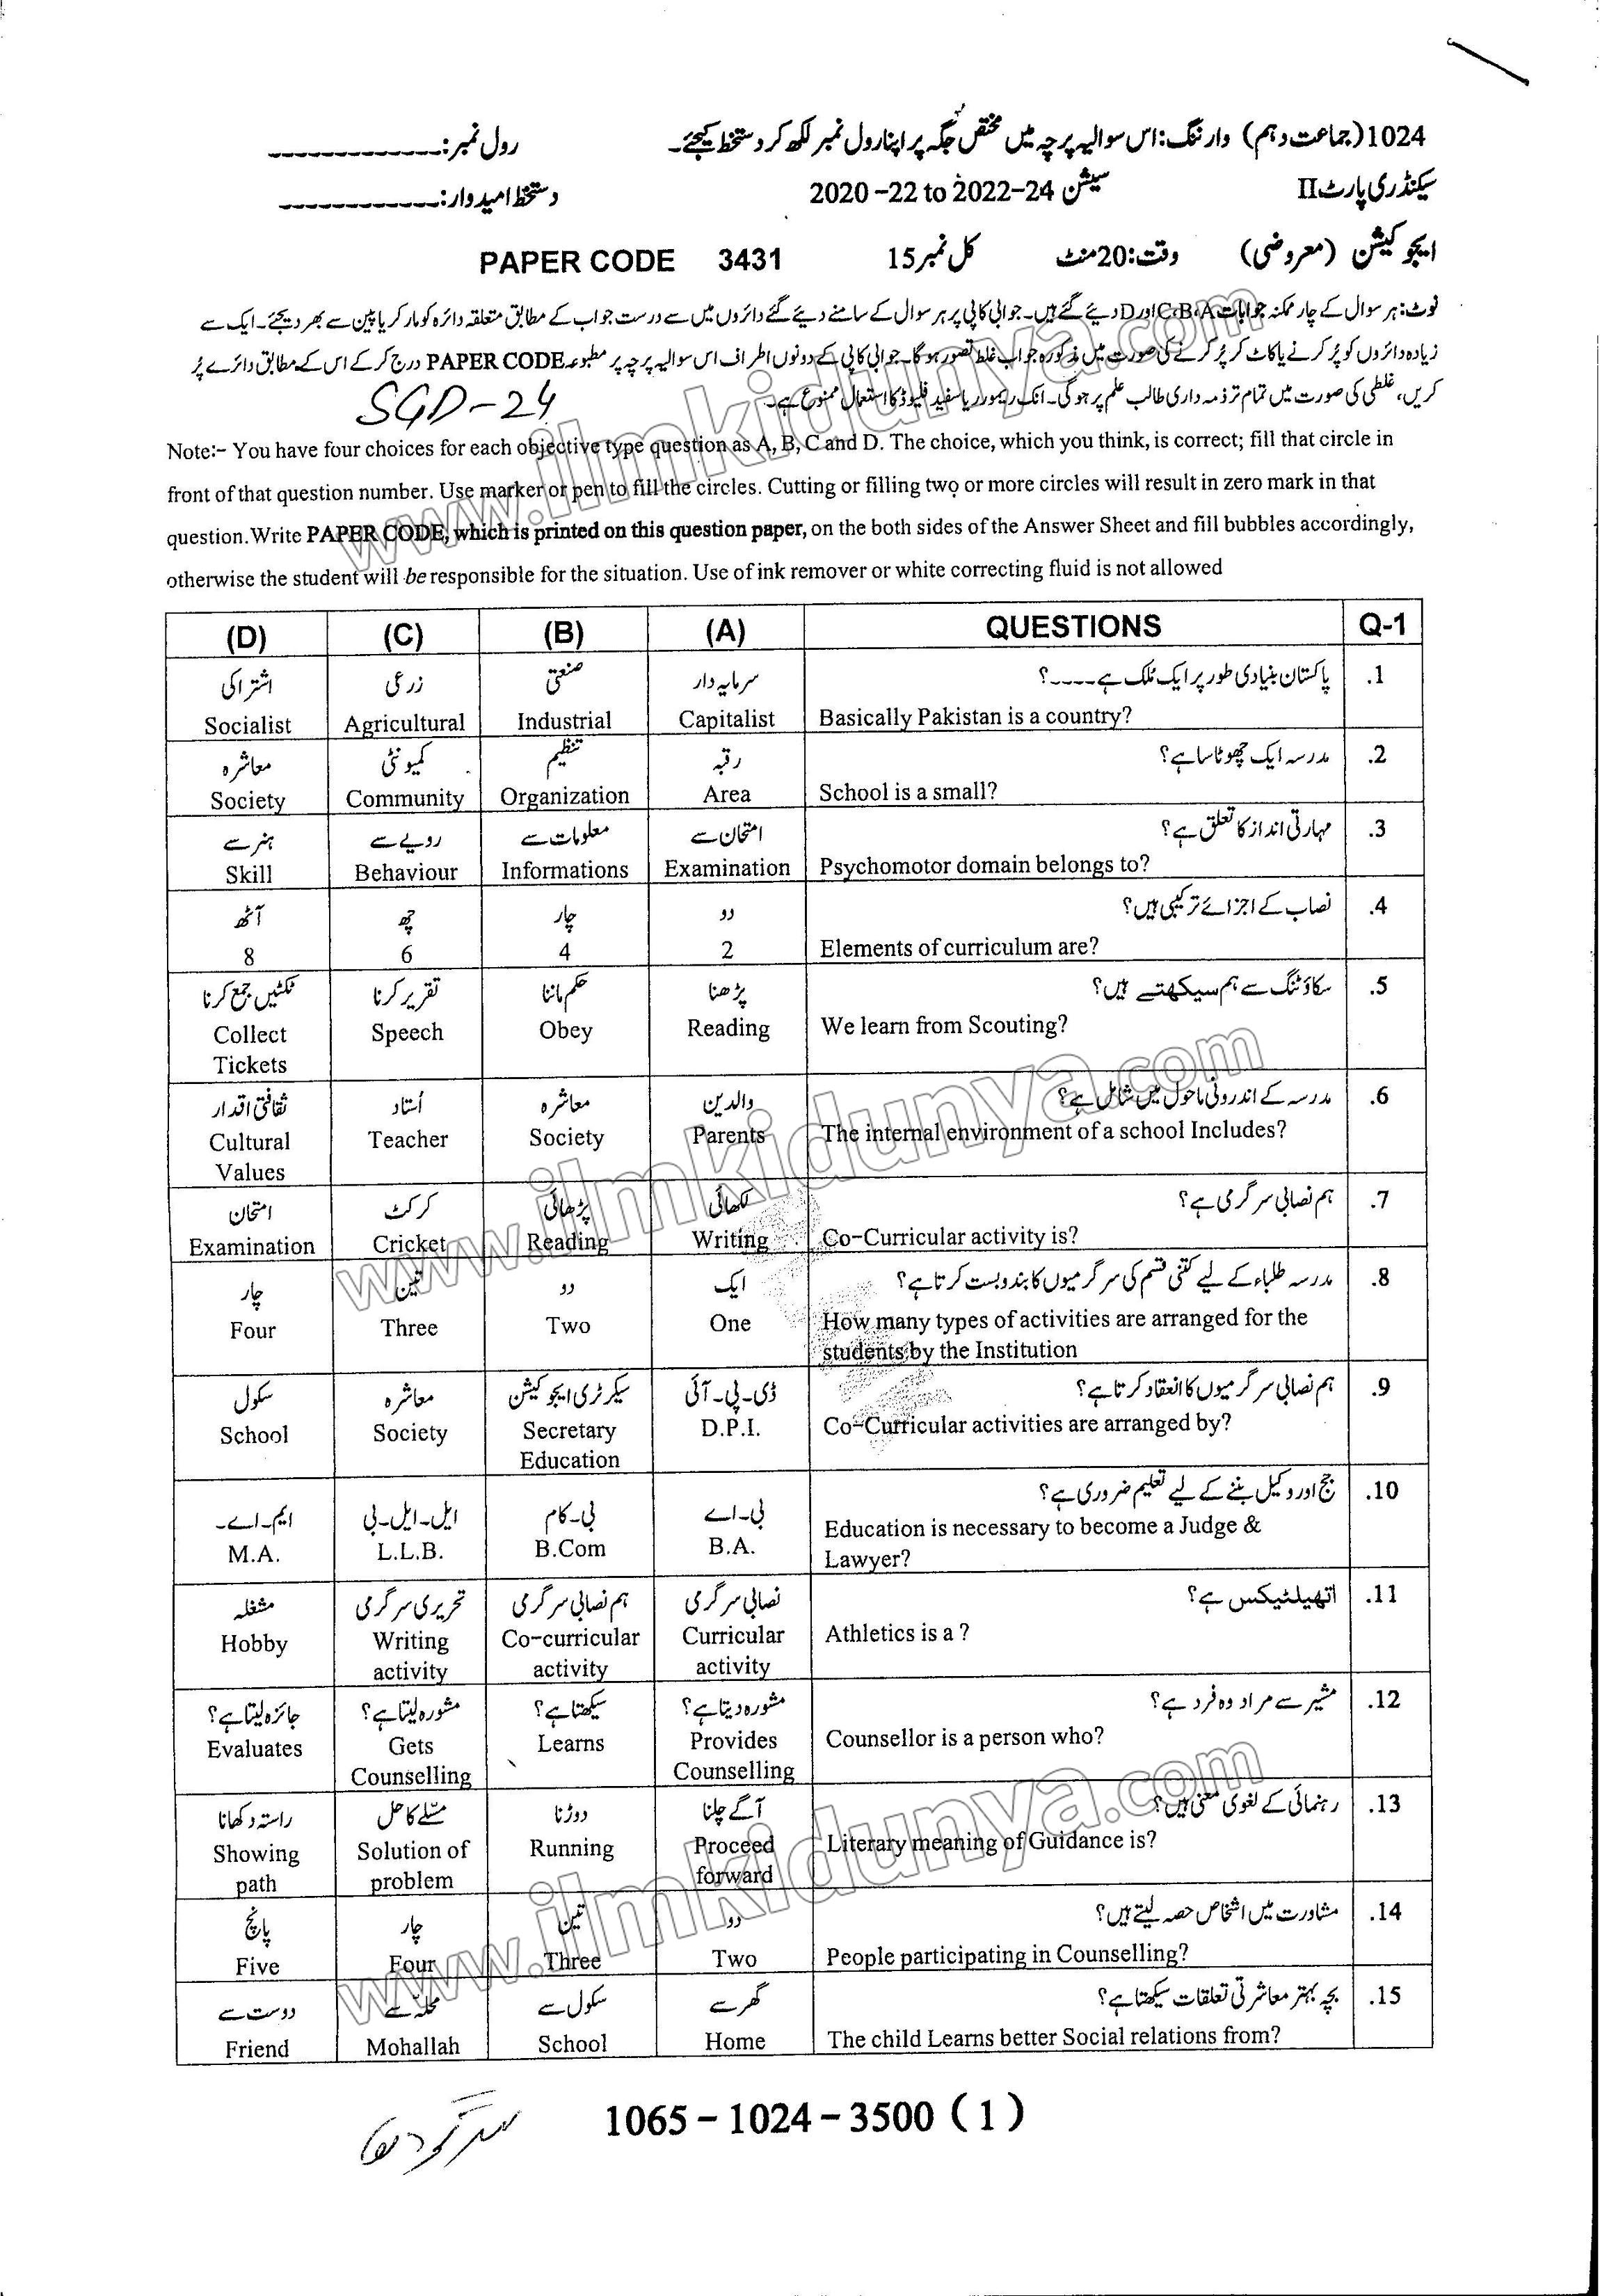 1024(جماعت دہم) وارننگ: اس سوالیہ پرچہ میں مختص جگہ پر اپنا رول نمبر لکھ کر دستخط کیجئے۔ رول نمبر:-------------
سیکنڈری پارٹ II سیشن 2020-22 to 2022-24 دستخط امیدوار:------------
ایجوکیشن (معروضی) وقت:20منٹ کل نمبر15 PAPER CODE 3431
نوٹ: ہر سوال کے چار ممکنہ جوابات C،B،A اور D دیئے گئے ہیں۔ جوابی کاپی پر ہر سوال کے سامنے دیئے گئے دائروں میں سے درست جواب کے مطابق متعلقہ دائرہ کو مارکر یا پین سے بھر دیجئے۔ ایک سے
زیادہ دائروں کو پُر کرنے یا کاٹ کر پُر کرنے کی صورت میں مذکورہ جواب غلط تصور ہوگا۔ جوابی کاپی کے دونوں اطراف اس سوالیہ پرچہ پر مطبوعہ PAPER CODE درج کر کے اس کے مطابق دائرے پُر
کریں، غلطی کی صورت میں تمام تر ذمہ داری طالب علم پر ہوگی۔ انک ریموور یا سفید فلیوڈ کا استعمال ممنوع ہے۔
SGD-24
Note:- You have four choices for each objective type question as A, B, C and D. The choice, which you think, is correct; fill that circle in
front of that question number. Use marker or pen to fill the circles. Cutting or filling two or more circles will result in zero mark in that
question. Write PAPER CODE, which is printed on this question paper, on the both sides of the Answer Sheet and fill bubbles accordingly,
otherwise the student will be responsible for the situation. Use of ink remover or white correcting fluid is not allowed
(D) (C) (B) (A) QUESTIONS Q-1
اشتراکی زرعی صنعتی سرمایہ دار پاکستان بنیادی طور پر ایک ملک ہے----؟ .1
Socialist Agricultural Industrial Capitalist Basically Pakistan is a country?
معاشرہ کمیونٹی تنظیم رقبہ مدرسہ ایک چھوٹا سا ہے؟ .2
Society Community Organization Area School is a small?
ہنر سے رویے سے معلومات سے امتحان سے مہارتی انداز کا تعلق ہے؟ .3
Skill Behaviour Informations Examination Psychomotor domain belongs to?
آٹھ چھ چار دو نصاب کے اجزائے ترکیبی ہیں؟ .4
8 6 4 2 Elements of curriculum are?
ٹکٹیں جمع کرنا تقریر کرنا حکم ماننا پڑھنا سکاؤٹنگ سے ہم سیکھتے ہیں؟ .5
Collect Speech Obey Reading We learn from Scouting?
Tickets
ثقافتی اقدار اُستاد معاشرہ والدین مدرسہ کے اندرونی ماحول میں شامل ہے؟ .6
Cultural Teacher Society Parents The internal environment of a school Includes?
Values
امتحان کرکٹ پڑھائی لکھائی ہم نصابی سرگرمی ہے؟ .7
Examination Cricket Reading Writing Co-Curricular activity is?
چار تین دو ایک مدرسہ طلباء کے لیے کتنی قسم کی سرگرمیوں کا بندوبست کرتا ہے؟ .8
Four Three Two One How many types of activities are arranged for the
students by the Institution
سکول معاشرہ سیکرٹری ایجوکیشن ڈی-پی-آئی ہم نصابی سرگرمیوں کا انعقاد کرتا ہے؟ .9
School Society Secretary D.P.I. Co-Curricular activities are arranged by?
Education
ایم-اے- ایل-ایل-بی بی-کام بی-اے جج اور وکیل بننے کے لیے تعلیم ضروری ہے؟ .10
M.A. L.L.B. B.Com B.A. Education is necessary to become a Judge &
Lawyer?
مشغلہ تحریری سرگرمی ہم نصابی سرگرمی نصابی سرگرمی اتھیلٹیکس ہے؟ .11
Hobby Writing Co-curricular Curricular Athletics is a ?
activity activity activity
جائزہ لیتا ہے؟ مشورہ لیتا ہے؟ سیکھتا ہے؟ مشورہ دیتا ہے؟ مشیر سے مراد وہ فرد ہے؟ .12
Evaluates Gets Learns Provides Counsellor is a person who?
Counselling Counselling
راستہ دکھانا مسئلے کا حل دوڑنا آگے چلنا رہنمائی کے لغوی معنی ہیں؟ .13
Showing Solution of Running Proceed Literary meaning of Guidance is?
path problem forward
پانچ چار تین دو مشاورت میں اشخاص حصہ لیتے ہیں؟ .14
Five Four Three Two People participating in Counselling?
دوست سے محلہ سے سکول سے گھر سے بچہ بہتر معاشرتی تعلقات سیکھتا ہے؟ .15
Friend Mohallah School Home The child Learns better Social relations from?
1065-1024-3500 (1)
سرگودھا
www.ilmkidunya.com
www.ilmkidunya.com
www.ilmkidunya.com